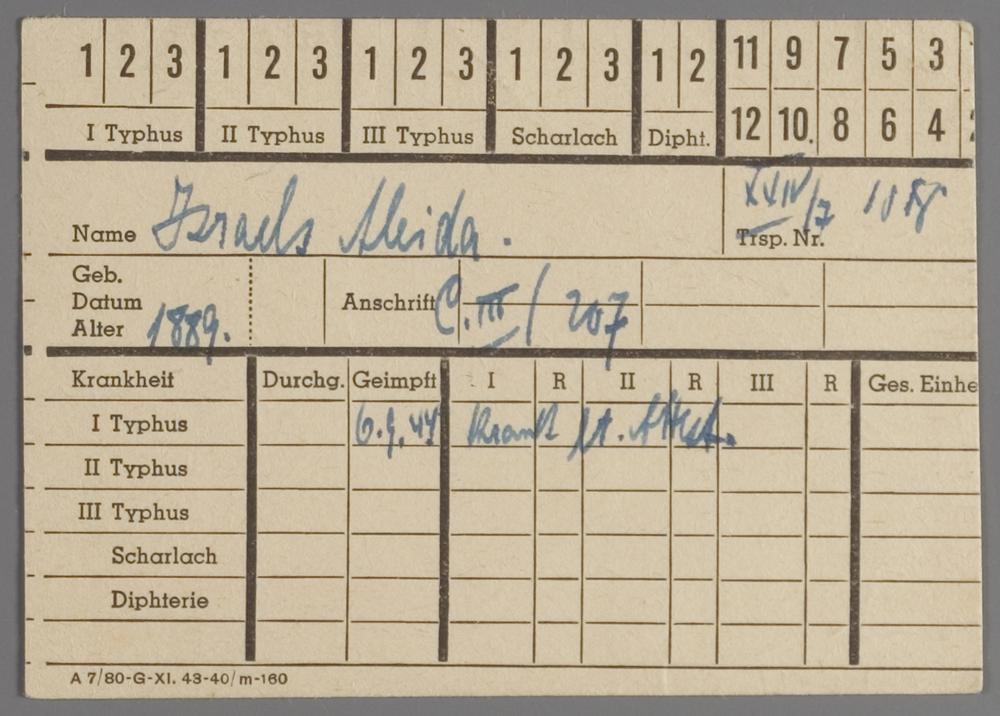 1 2 3 1 2 3 1 2 3 1 2 3 1 2 11 9 7 5 3
I Typhus II Typhus III Typhus Scharlach Dipht. 12 10. 8 6 4
Name Israels Aleida. XXIV/7
Trsp. Nr.
Geb.
Datum
Alter 1889. Anschrift C.III/207
Krankheit Durchg. Geimpft I R II R III R Ges. Einhe
I Typhus 6.9.44 Krank lt. Attest.
II Typhus
III Typhus
Scharlach
Diphterie
A 7/80-G-XI. 43-40/m-160